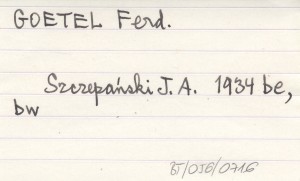 GOETEL Ferd.
Szczepański J. A. 1934 be,
bw
BJ/OJB/0716